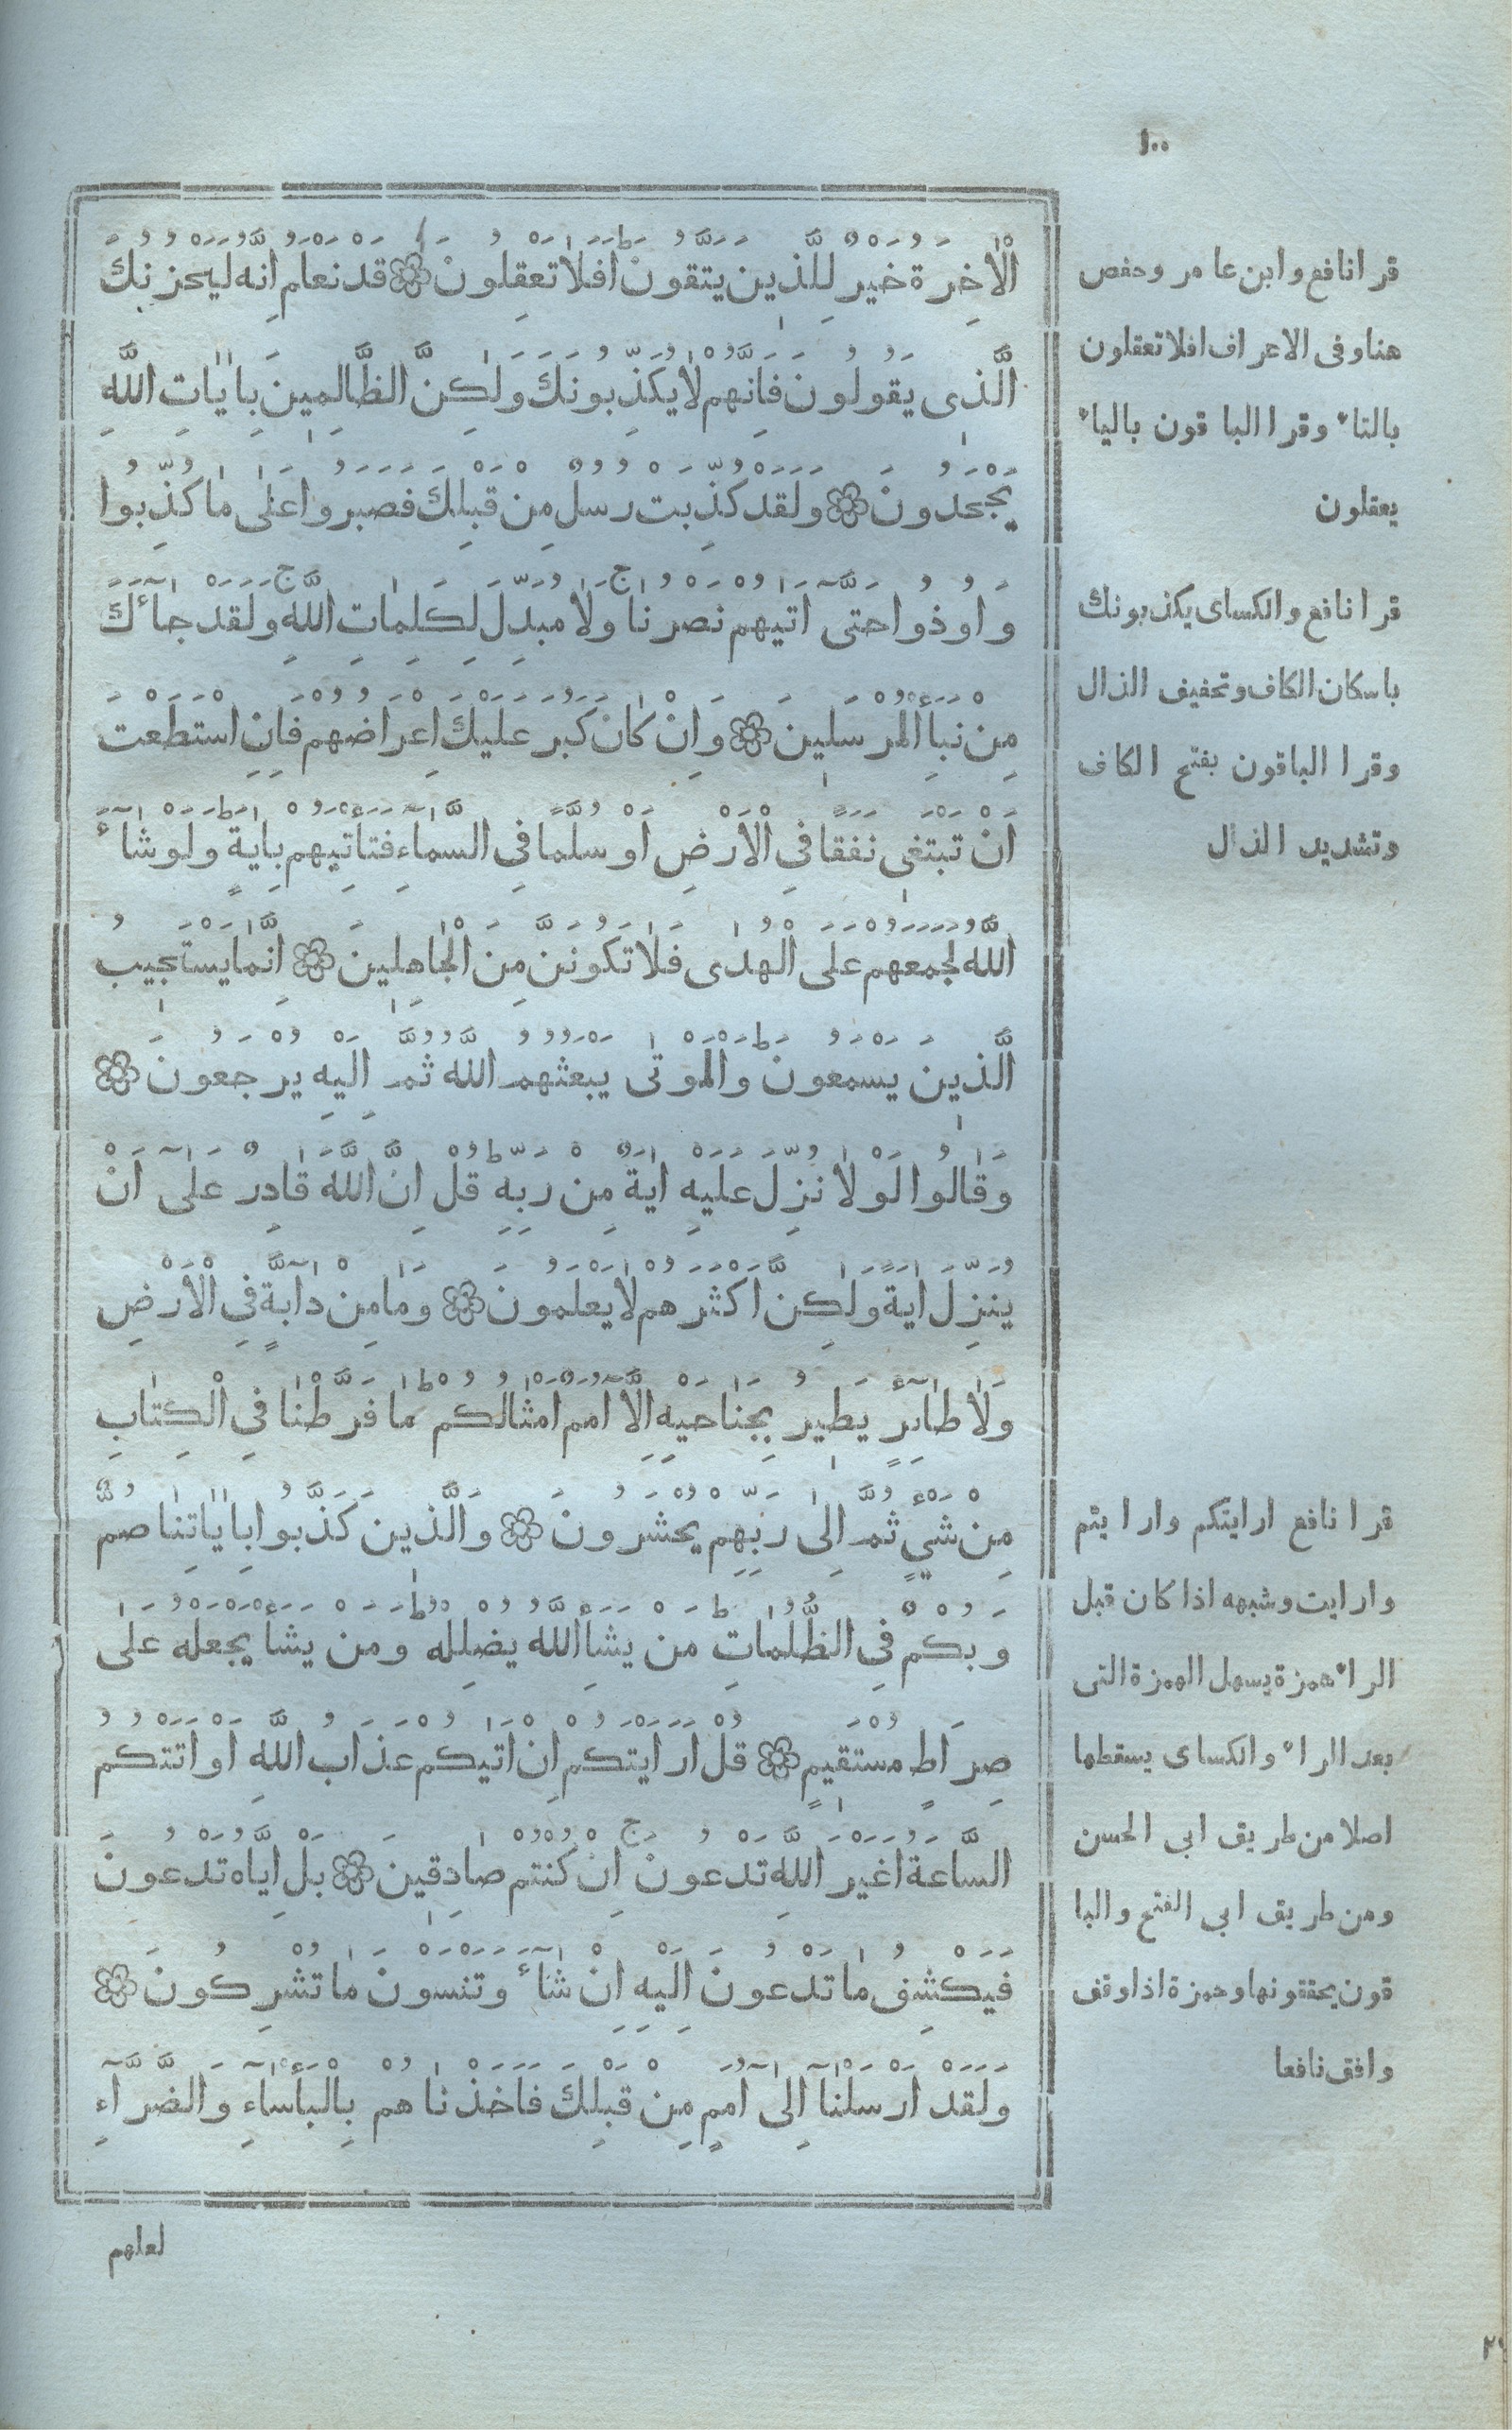 ١٠٠
الْاٰخِرَةُ خَيْرٌ لِلَّذِينَ يَتَّقُونَ اَفَلَا تَعْقِلُونَ ۞ قَدْ نَعْلَمُ اِنَّهُ لَيَحْزُنُكَ
الَّذِى يَقُولُونَ فَاِنَّهُمْ لَا يُكَذِّبُونَكَ وَلٰكِنَّ الظَّالِمِينَ بِاٰيَاتِ اللَّهِ
يَجْحَدُونَ ۞ وَلَقَدْ كُذِّبَتْ رُسُلٌ مِنْ قَبْلِكَ فَصَبَرُوا عَلٰى مَا كُذِّبُوا
وَاُوذُوا حَتّٰى اَتٰيهُمْ نَصْرُنَا ج وَلَا مُبَدِّلَ لِكَلِمَاتِ اللَّهِ ج وَلَقَدْ جَآءَكَ
مِنْ نَبَأِ الْمُرْسَلِينَ ۞ وَاِنْ كَانَ كَبُرَ عَلَيْكَ اِعْرَاضُهُمْ فَاِنِ اسْتَطَعْتَ
اَنْ تَبْتَغِىَ نَفَقًا فِى الْاَرْضِ اَوْ سُلَّمًا فِى السَّمَآءِ فَتَأْتِيَهُمْ بِاٰيَةٍ ط وَلَوْ شَآءَ
اللَّهُ لَجَمَعَهُمْ عَلَى الْهُدٰى فَلَا تَكُونَنَّ مِنَ الْجَاهِلِينَ ۞ اِنَّمَا يَسْتَجِيبُ
الَّذِينَ يَسْمَعُونَ ط وَالْمَوْتٰى يَبْعَثُهُمُ اللَّهُ ثُمَّ اِلَيْهِ يُرْجَعُونَ ۞
وَقَالُوا لَوْلَا نُزِّلَ عَلَيْهِ اٰيَةٌ مِنْ رَبِّهِ ط قُلْ اِنَّ اللَّهَ قَادِرٌ عَلٰٓى اَنْ
يُنَزِّلَ اٰيَةً وَلٰكِنَّ اَكْثَرَهُمْ لَا يَعْلَمُونَ ۞ وَمَا مِنْ دَآبَّةٍ فِى الْاَرْضِ
وَلَا طَآئِرٍ يَطِيرُ بِجَنَاحَيْهِ اِلَّآ اُمَمٌ اَمْثَالُكُمْ ط مَا فَرَّطْنَا فِى الْكِتَابِ
مِنْ شَيْءٍ ثُمَّ اِلٰى رَبِّهِمْ يُحْشَرُونَ ۞ وَالَّذِينَ كَذَّبُوا بِاٰيَاتِنَا صُمٌّ
وَبُكْمٌ فِى الظُّلُمَاتِ ط مَنْ يَشَأِ اللَّهُ يُضْلِلْهُ ط وَمَنْ يَشَأْ يَجْعَلْهُ عَلٰى
صِرَاطٍ مُسْتَقِيمٍ ۞ قُلْ اَرَاَيْتَكُمْ اِنْ اَتٰيكُمْ عَذَابُ اللَّهِ اَوْ اَتَتْكُمُ
السَّاعَةُ اَغَيْرَ اللَّهِ تَدْعُونَ ج اِنْ كُنْتُمْ صَادِقِينَ ۞ بَلْ اِيَّاهُ تَدْعُونَ
فَيَكْشِفُ مَا تَدْعُونَ اِلَيْهِ اِنْ شَآءَ وَتَنْسَوْنَ مَا تُشْرِكُونَ ۞
وَلَقَدْ اَرْسَلْنَآ اِلٰٓى اُمَمٍ مِنْ قَبْلِكَ فَاَخَذْنَاهُمْ بِالْبَأْسَآءِ وَالضَّرَّآءِ
لعلهم
قرا نافع وابن عامر وحفص
هنا وفى الاعراف افلا تعقلون
بالتاء وقرا الباقون بالياء
يعقلون
قرا نافع والكساى يكذبونك
باسكان الكاف وتخفيف الذال
وقرا الباقون بفتح الكاف
وتشديد الذال
قرا نافع ارايتكم وارايتم
وارايت وشبهه اذا كان قبل
الراء همزة يسهل الهمزة التى
بعد الراء والكساى يسقطها
اصلا من طريق ابى الحسن
ومن طريق ابى الفتح والبا
قون يحققونها وحمزة اذا وقف
وافق نافعا